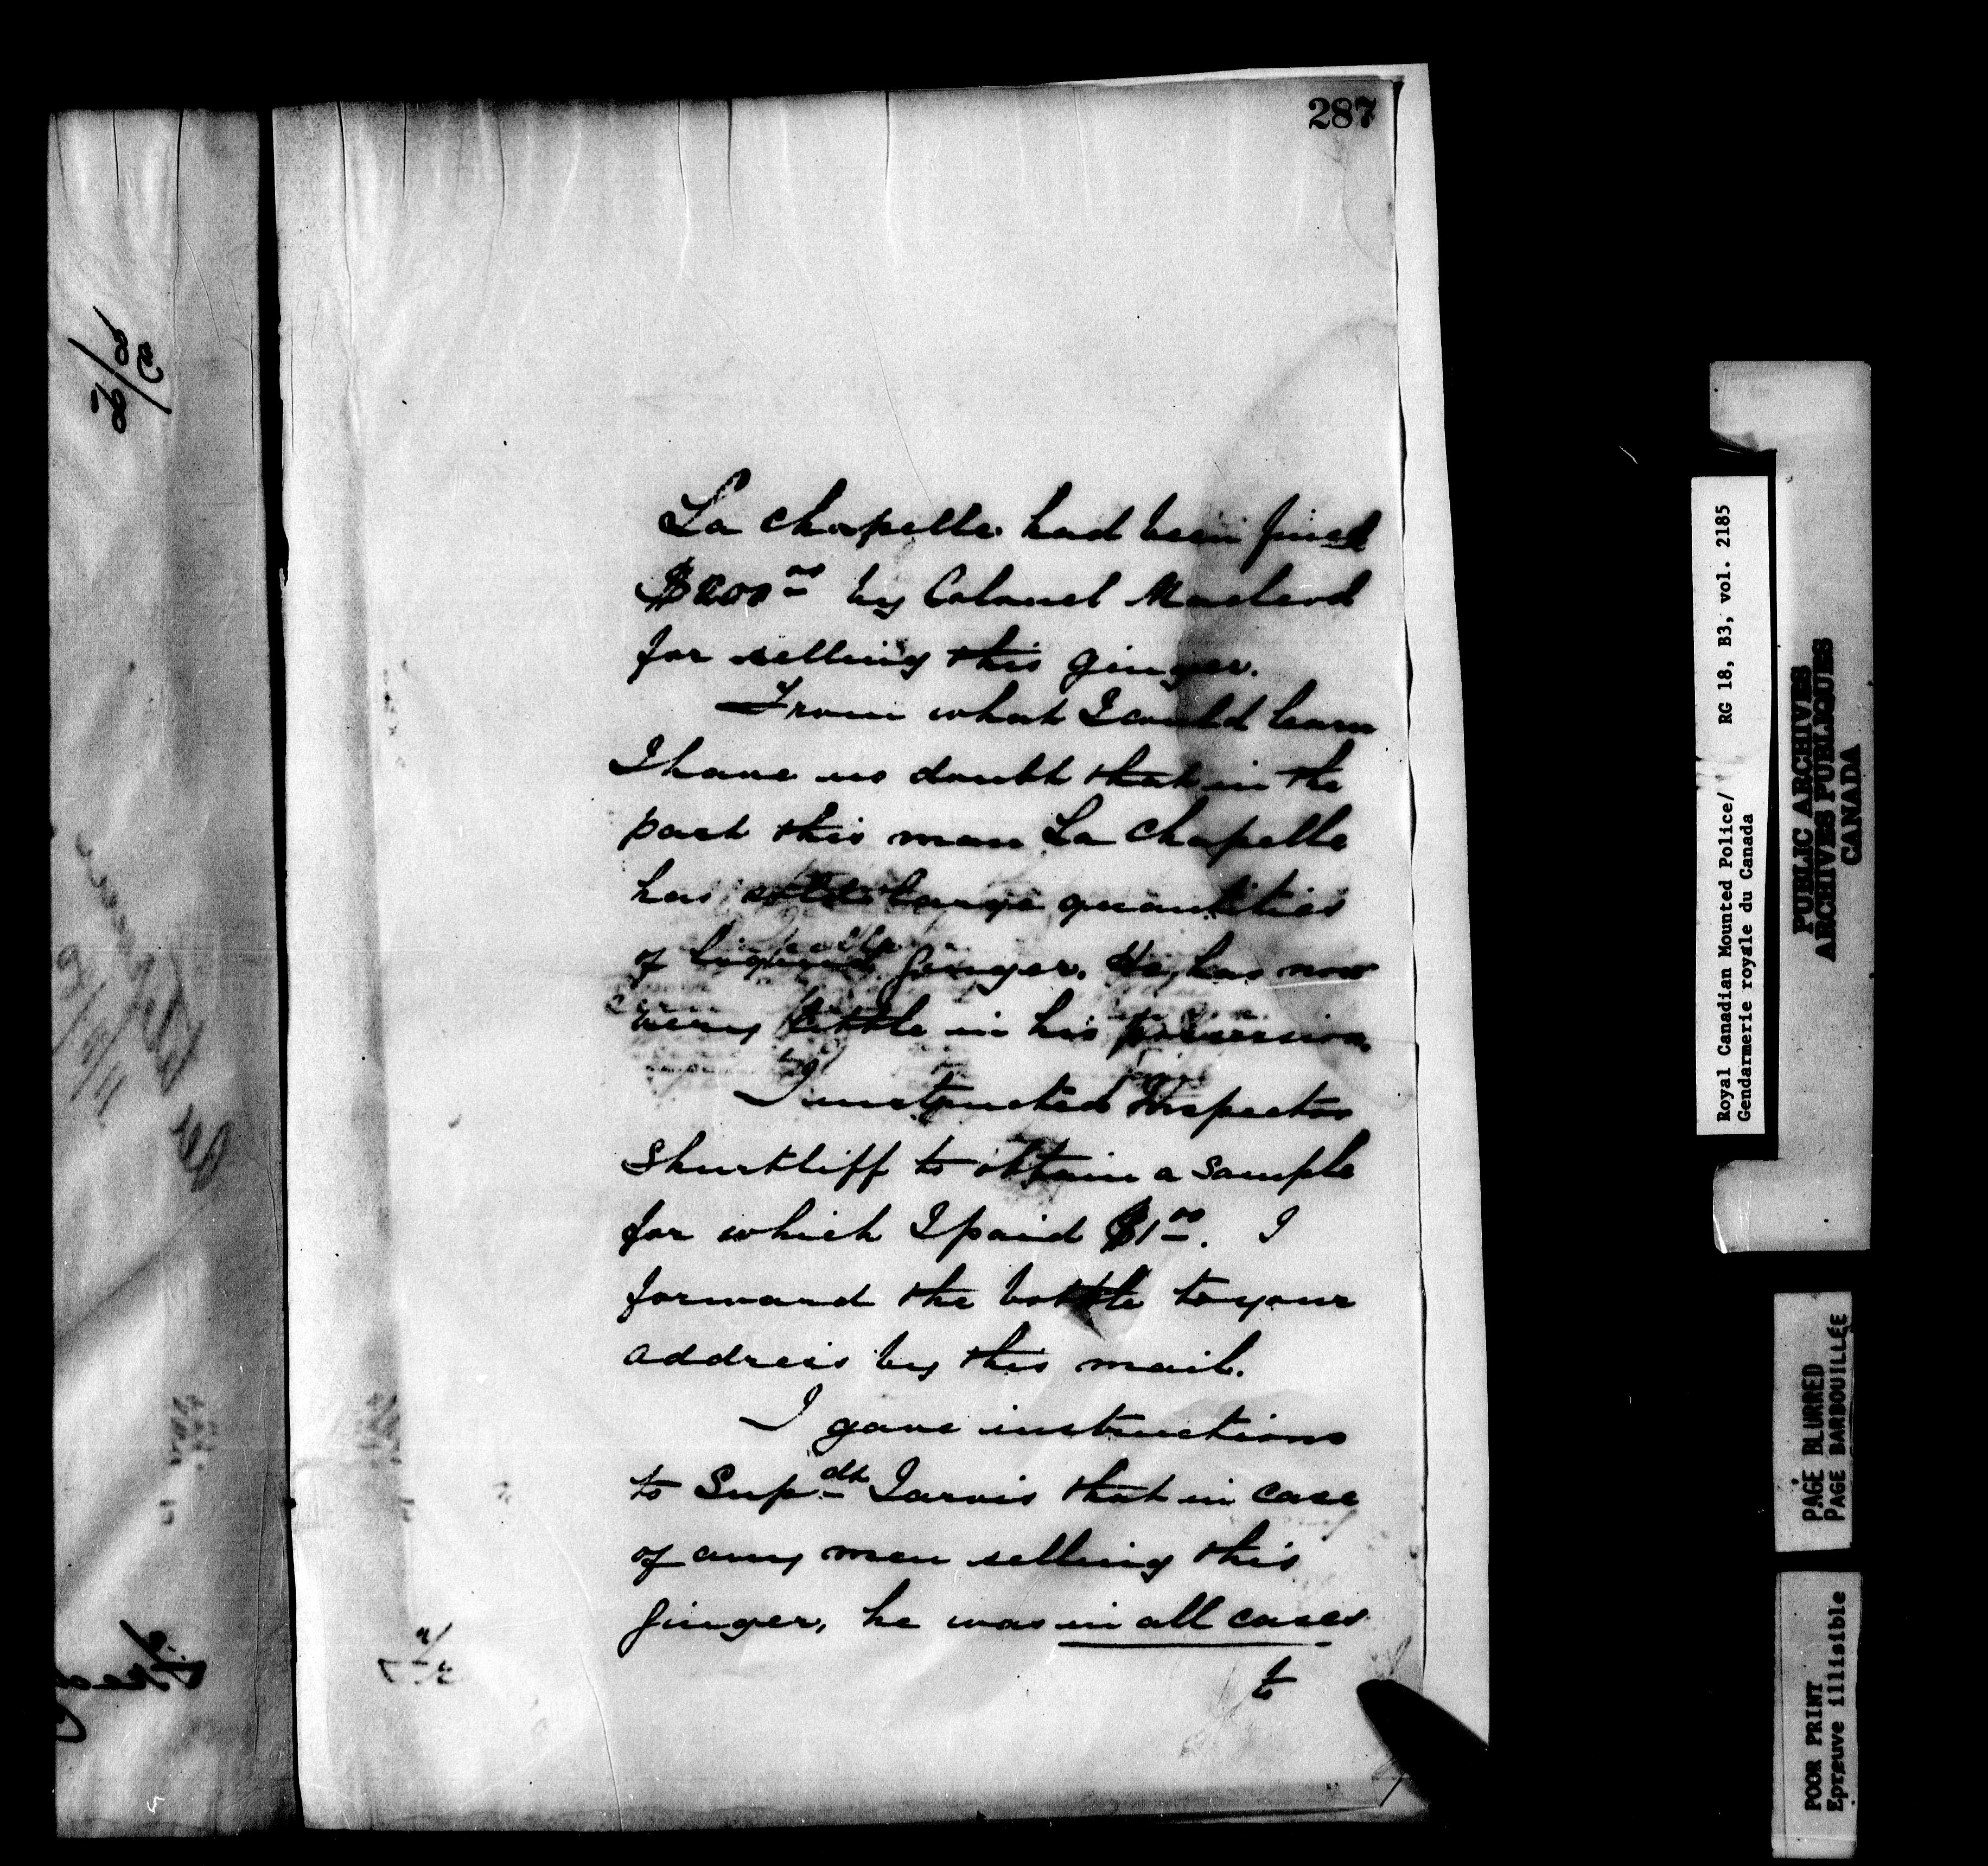 287
La Chapelle had been fined
$200⁰⁰ by Colonel Macleod
for selling this ginger.
From what I could learn
I have no doubt that in the
past this man La Chapelle
has sold large quantities
of liquid ginger. He has now
very little in his possession.
I instructed Inspector
Shurtliff to obtain a sample
for which I paid $1⁰⁰. I
forward the bottle to your
address by this mail.
I gave instructions
to Supᵈᵗ Jarvis that in case
of any men selling this
ginger, he was in all cases
to
Royal Canadian Mounted Police/ RG 18, B3, vol. 2185
Gendarmerie royale du Canada
PUBLIC ARCHIVES
ARCHIVES PUBLIQUES
CANADA
PAGE BLURRED
PAGE BARBOUILLÉE
POOR PRINT
Epreuve illisible